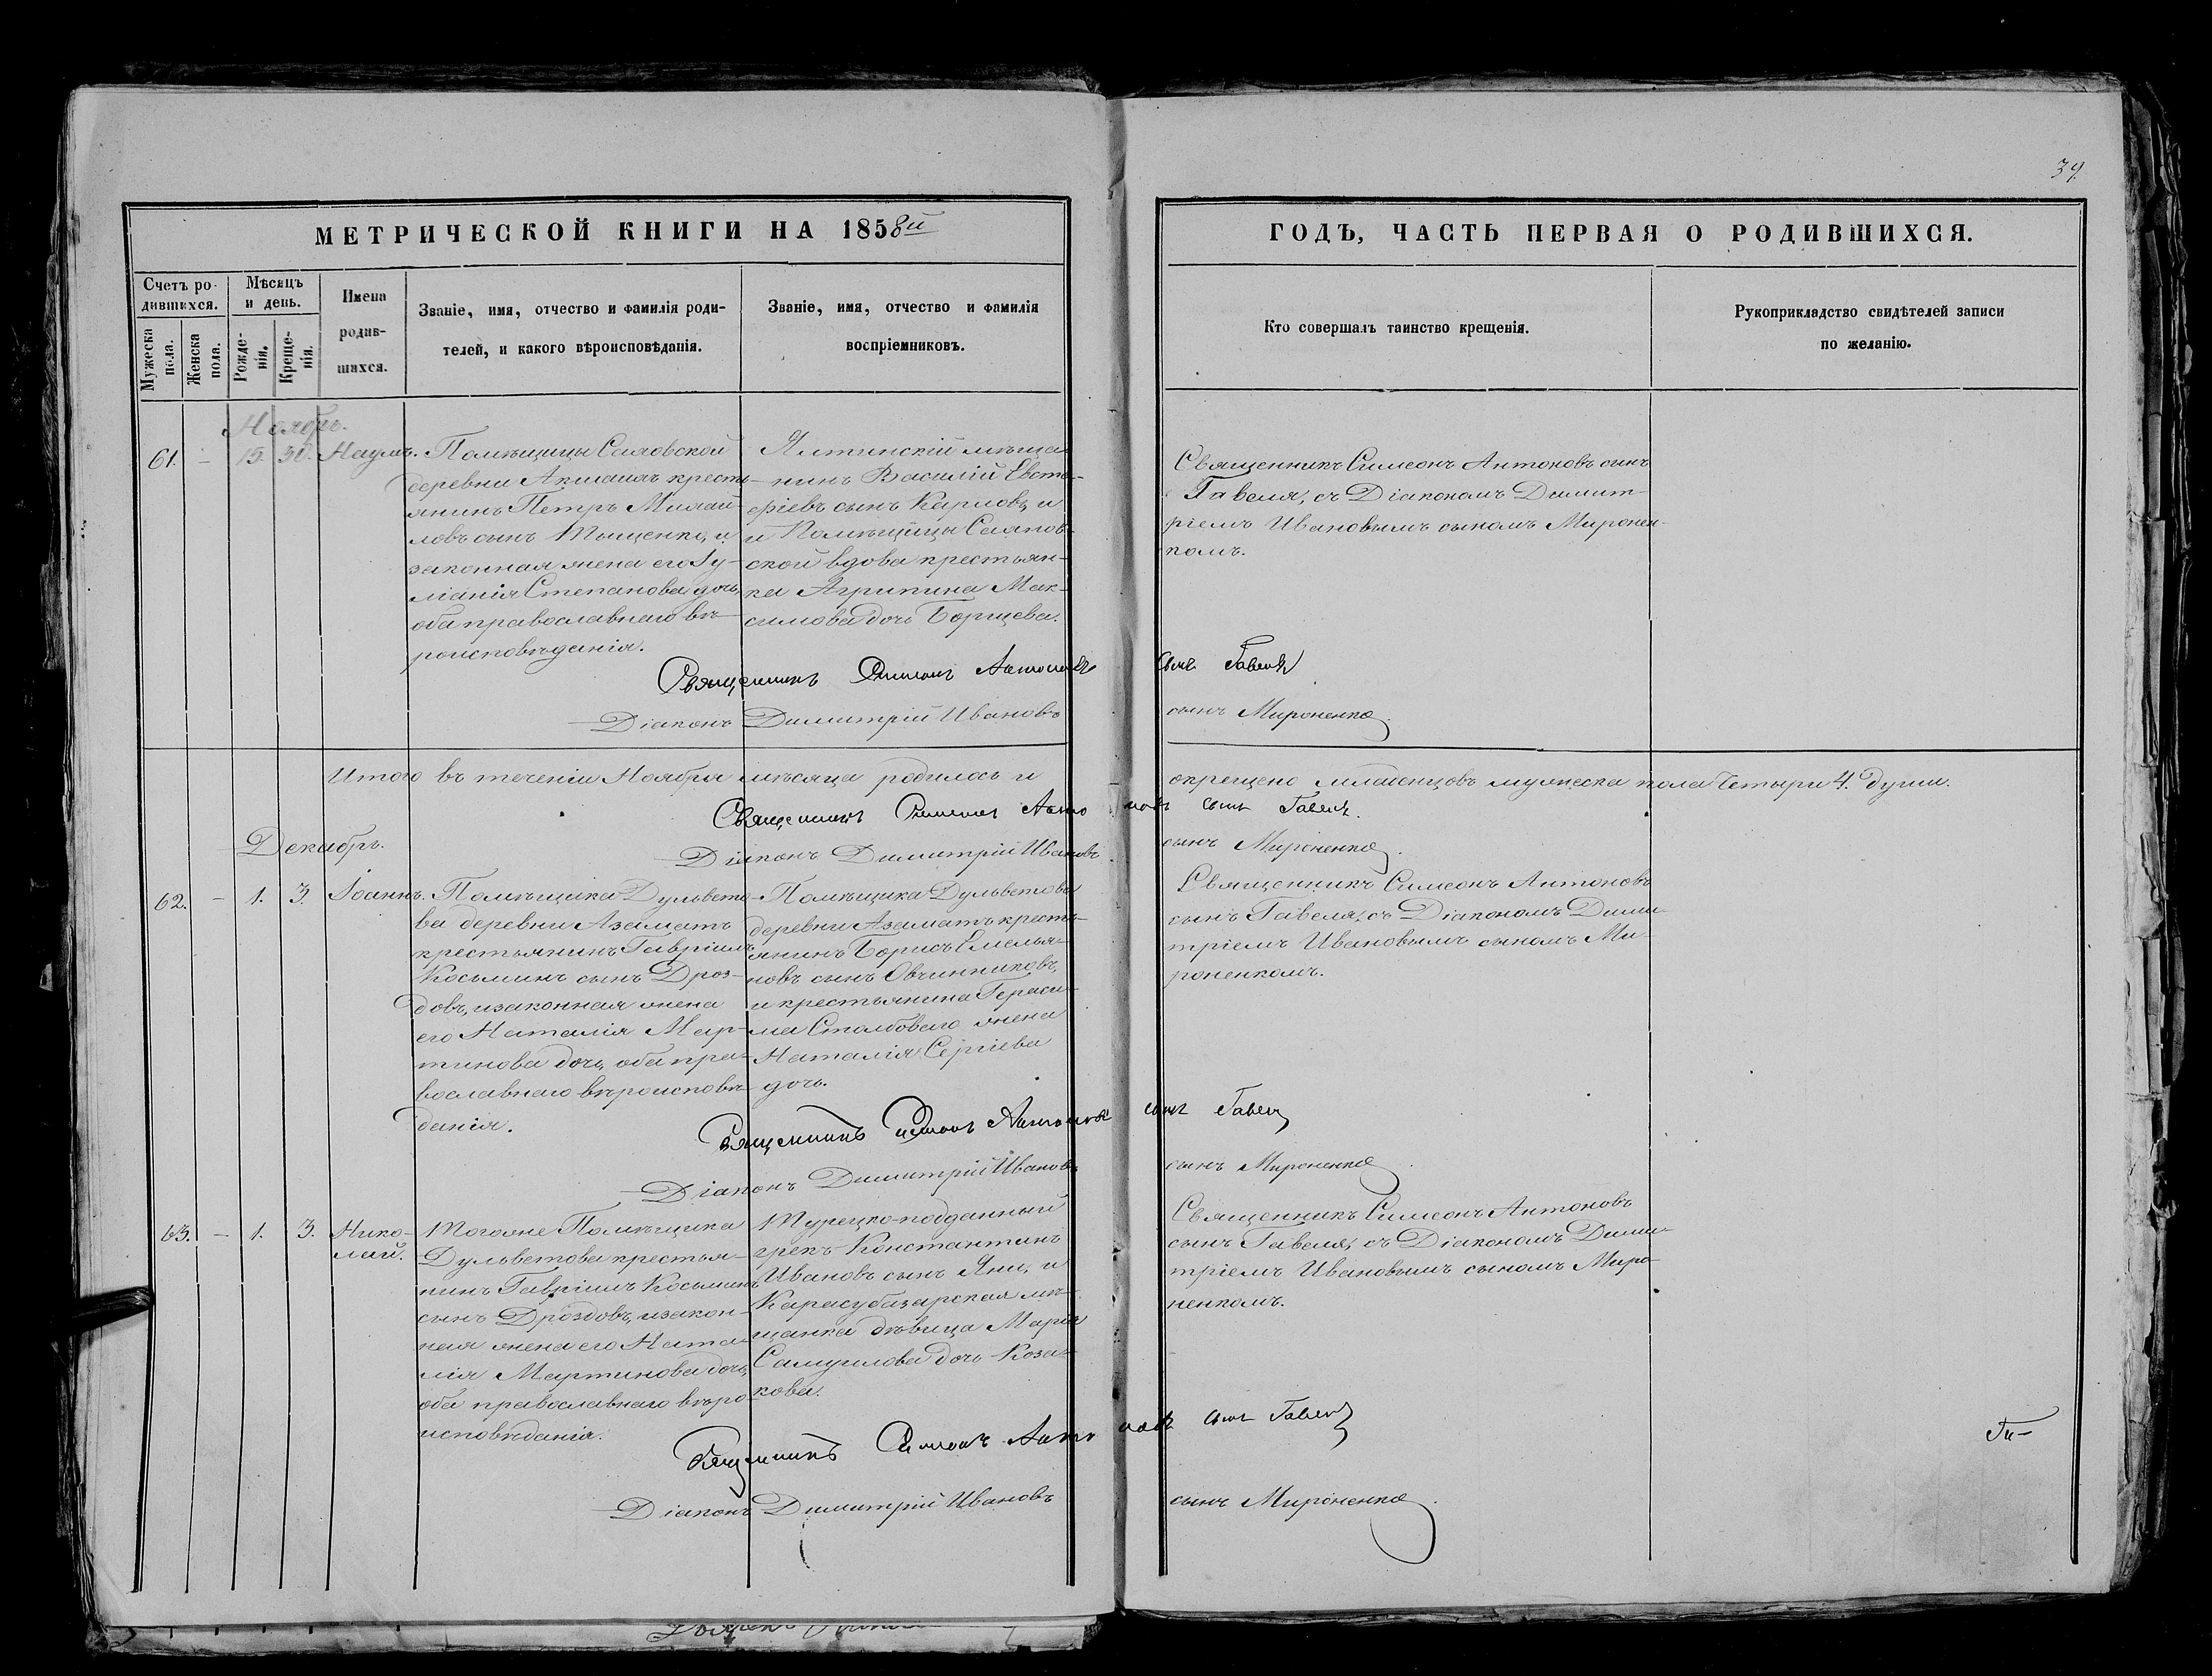 39.
МЕТРИЧЕСКОЙ КНИГИ НА 1858й
ГОДЪ, ЧАСТЬ ПЕРВАЯ О РОДИВШИХСЯ.
Счетъ ро-
дившихся.
Мужеска
пола.
Женска
пола.
Мѣсяцъ
и день.
Рожде-
нія.
Креще-
нія.
Имена
родив-
шихся.
Званіе, имя, отчество и фамилія роди-
телей, и какого вѣроисповѣданія.
Званіе, имя, отчество и фамилія
воспріемниковъ.
Кто совершалъ таинство крещенія.
Рукоприкладство свидѣтелей записи
по желанію.
Ноябрь.
61. – 15. 30. Наумъ.
Помѣщицы
деревни кресть-
янинъ Петръ Михай-
ловъ сынъ Тищенко, и
законная жена его Іу-
ліанія Степанова дочь,
оба православнаго вѣ-
роисповѣданія.
Ялтинскій мѣща-
нинъ Василій Евста-
фіевъ сынъ Карловъ, и
и Помѣщицы
вдова крестьян-
ка Агрипина Мак-
симова дочь Борщева.
Священникъ Симеонъ Антоновъ сынъ
Гавеля, съ Діакономъ Димит-
ріемъ Ивановымъ сыномъ Миронен-
комъ.
Священникъ Симеонъ Антоновъ сынъ Гавеля
Діаконъ Димитрій Ивановъ сынъ Мироненко.
Итого въ теченіи Ноября мѣсяца родилось и окрещено младенцовъ мужеска пола Четыри 4. души.
Священникъ Симеонъ Антоновъ сынъ Гавеля.
Діаконъ Димитрій Ивановъ сынъ Мироненко.
Декабрь.
62. – 1. 3. Іоаннъ.
Помѣщика Дульвето-
ва деревни Азаматъ
крестьянинъ Гавріилъ
Косьминъ сынъ Дроз-
довъ, и законная жена
его Наталія Мар-
тинова дочь, оба пра-
вославнаго вѣроисповѣ-
данія.
Помѣщика Дульветова
деревни Азаматъ кресть-
янинъ Борисъ Емелья-
новъ сынъ Овчинниковъ,
и крестьянина Гераси-
ма Столбоваго жена
Наталія Сергіева
дочь.
Священникъ Симеонъ Антоновъ
сынъ Гавеля, съ Діакономъ Дими-
тріемъ Ивановымъ сыномъ Ми-
роненкомъ.
Священникъ Симеонъ Антоновъ сынъ Гавеля
Діаконъ Димитрій Ивановъ сынъ Мироненко.
63. – 1. 3. Нико-
лай.
Тогоже Помѣщика
Дульветова крестья-
нинъ Гавріилъ Косьминъ
сынъ Дроздовъ, и закон-
ная жена его Ната-
лія Мартинова дочь,
оба православнаго вѣро-
исповѣданія.
Турецко-подданный
грекъ Константинъ
Ивановъ сынъ Яни, и
Карасубазарская мѣ-
щанка дѣвица Марія
Самуилова дочь Коза-
кова.
Священникъ Симеонъ Антоновъ
сынъ Гавеля, съ Діакономъ Дими-
тріемъ Ивановымъ сыномъ Миро-
ненкомъ.
Священникъ Симеонъ Антоновъ сынъ Гавеля
Діаконъ Димитрій Ивановъ сынъ Мироненко.